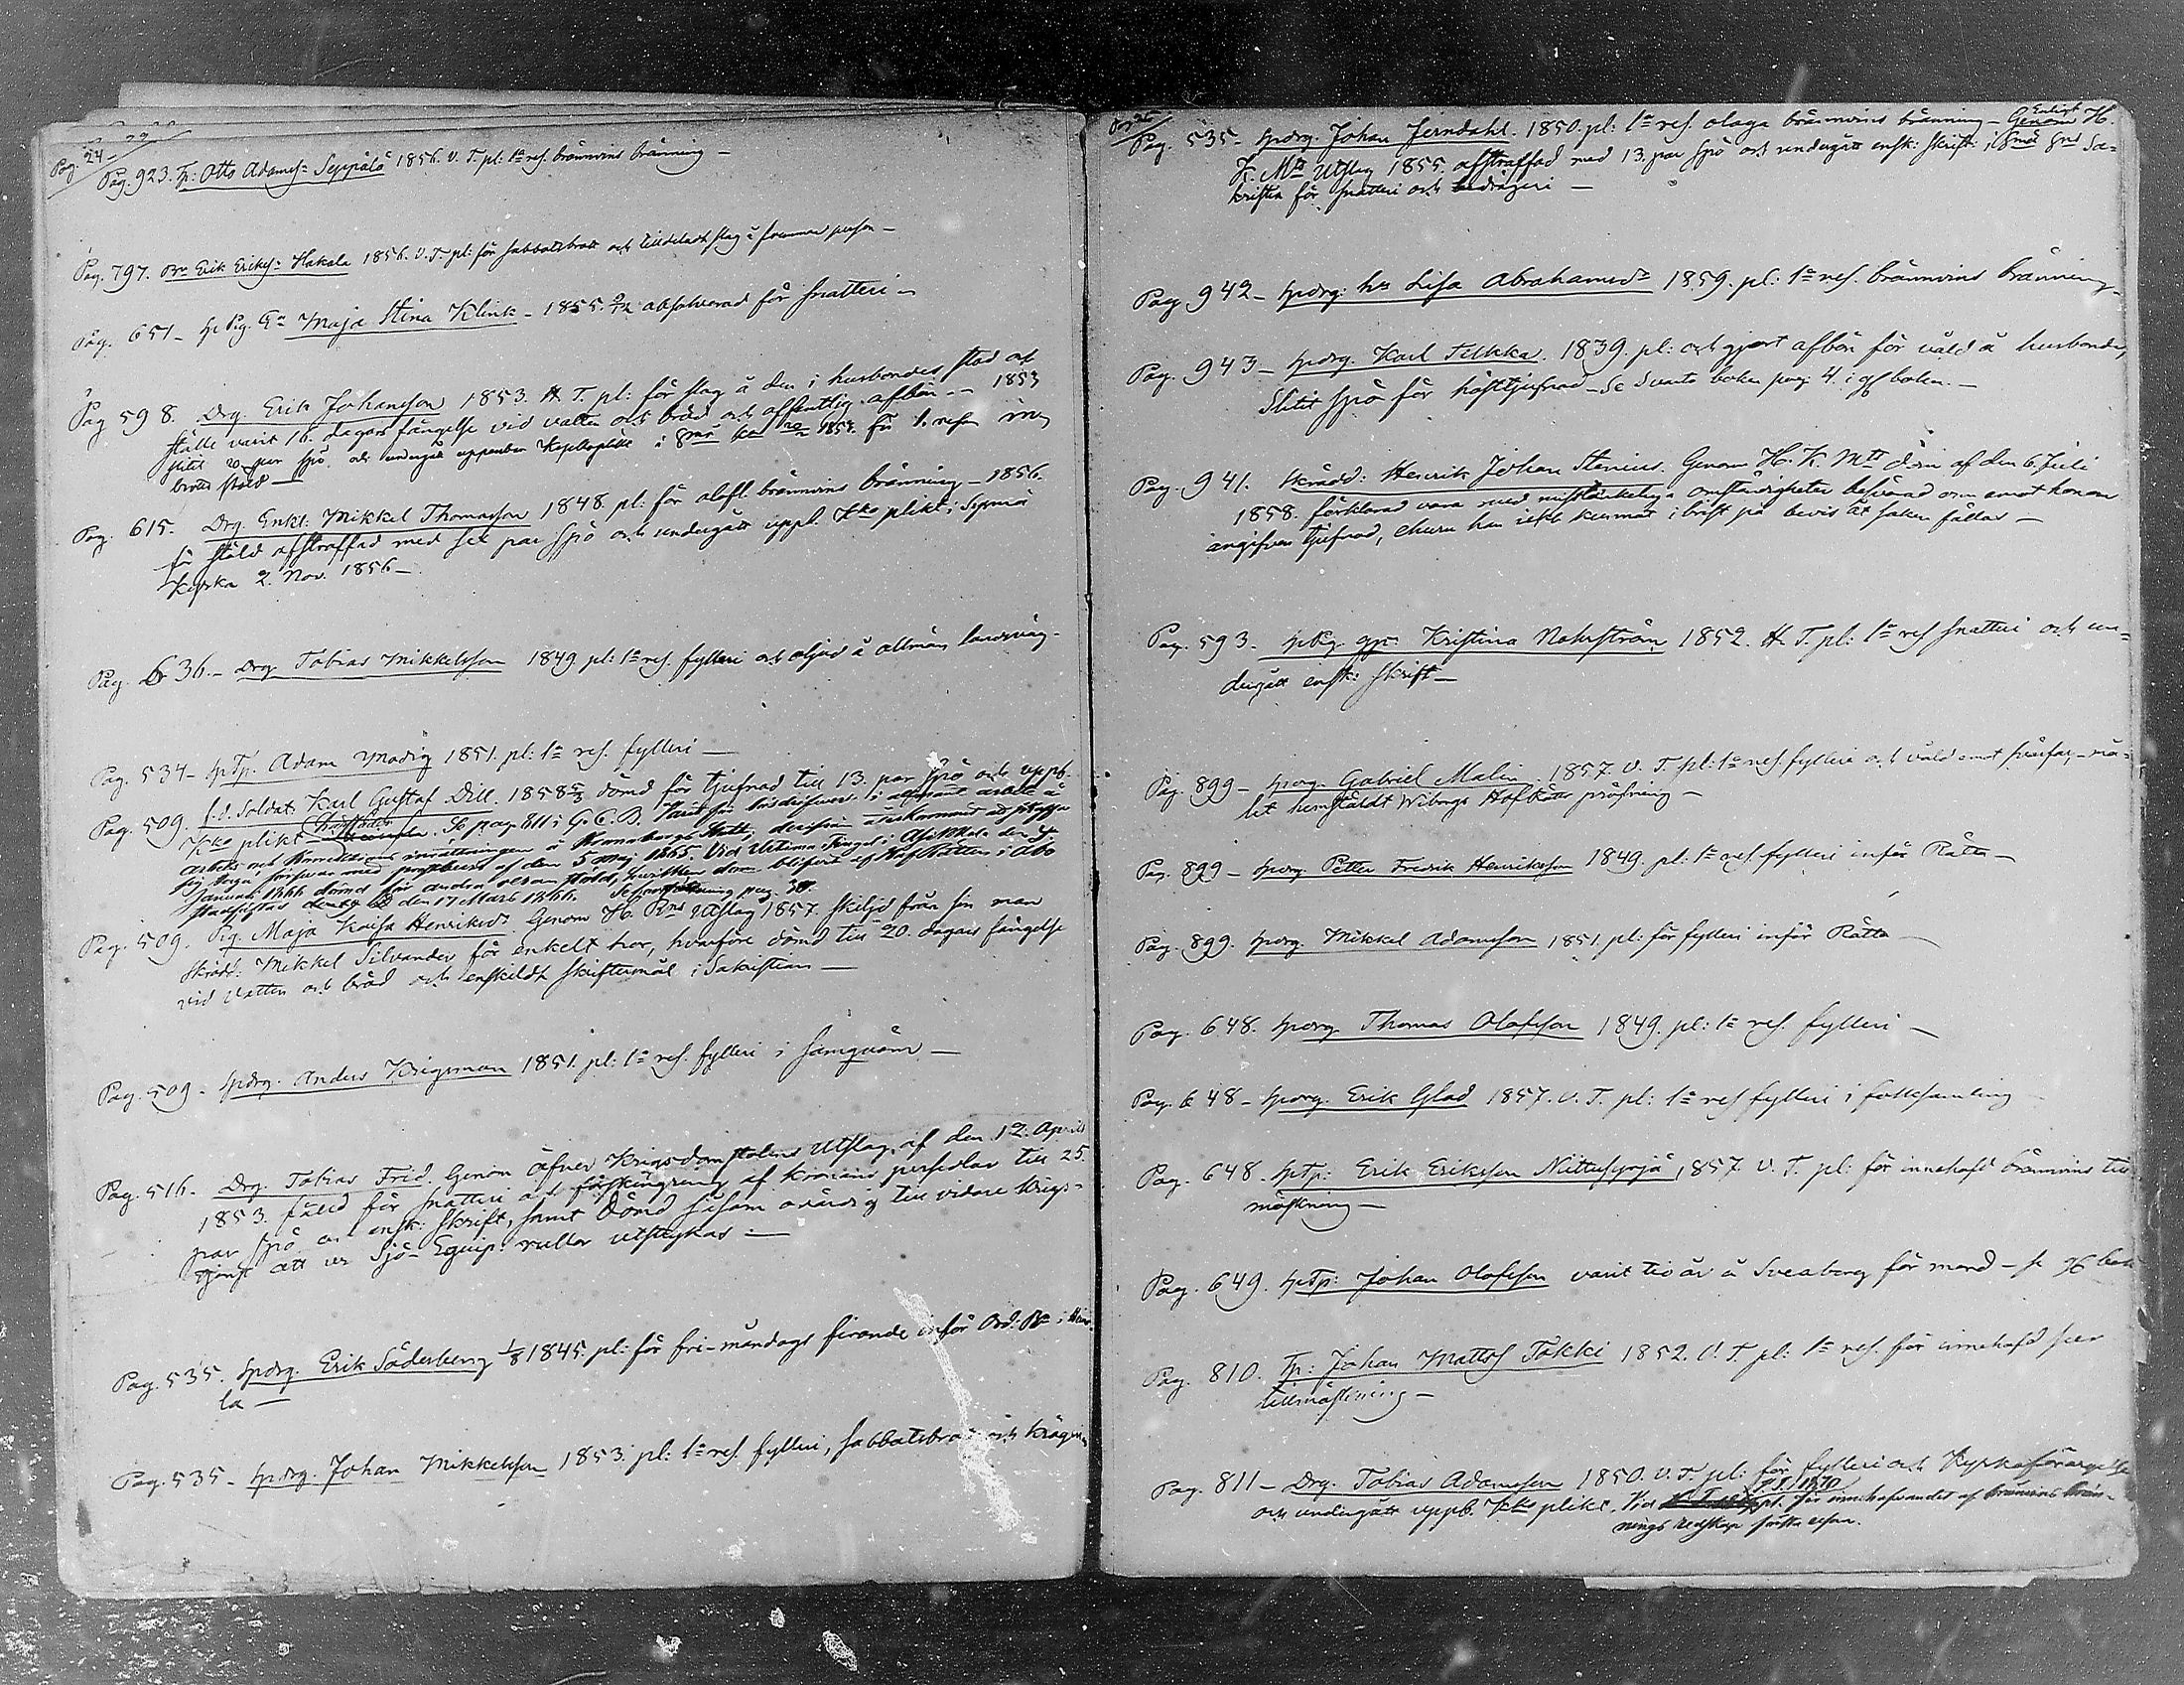 Pag. 24
Pag. 923. Tp: Otto Adamss: Seppälä 1856. V. T. pl: 1a res. brännvins bränning –
Pag. 797. Erik Erikss: Hakala 1856. V. T. pl: för sabbatsbrott och tilldeladt slag å person –
Pag. 651 – Maja Stina Klink – 1855. absolverad för snatteri –
Pag. 598. Drg. Erik Johansson 1853. H. T. pl: för slag å den i husbondes stad
ställe varit 16. dagars fängelse vid vatten och bröd och offentlig afbön – 1853
slitit 20 par spö och undergått uppenbar Kyrkoplikt i 1853. för 1. resan
stöld –
Pag. 615. Drg. Enkl: Mikkel Thomasson 1848. pl: för olofl. brännvins bränning – 1856.
för stöld afstraffad med sex par spö och undergått uppb. Kko plikt i Sysmä
Kyrka 2. Nov. 1856 –
Pag. 636. – Drg. Tobias Mikkelsson 1849 pl: 1a res. fylleri och oljud å allmän landsväg.
Pag. 534 – Adam Modig 1851. pl: 1a res. fylleri –
Pag. 509. f.d. Soldat Karl Gustaf Dill. 1858 dömd för tjufnad till 13. par spö och uppb.
Kko plikt Se pag. 811 i G. C. B.
arbets och Korrektions inrättningen å
af den 5 Maj 1865. Vid Urtima Tinget i Asikkala den
Januari 1866 dömd för andra resan stöld, hvilken dom blifvit af HofRätten i Åbo
stadfästad den 17 Mars 1866.
Pag. 509. Pig. Maja Kaisa Henriksdr. Genom H. Utslag 1857. skiljd från sin man
Skrädd: Mikkel Silvander för enkelt hor, hvarföre dömd till 20. dagars fängelse
vid vatten och bröd och enskildt skriftermål i Sakristian –
Pag. 509 – Anders Krigsman 1851. pl: 1a res. fylleri i samqväm –
Pag. 516. Drg. Tobias Frid. Genom öfver Krigsdomstolens Utslag af den 12. April
1853. fälld för snatteri och förskingring af kronans persedlar till 25.
par spö och ensk: skrift, samt dömd såsom ovärdig till vidare krigs-
tjenst att ur Sjö-Equip: rullor utstrykas –
Pag. 535. Erik Söderberg 1/8 1845. pl: för fri-måndags firande inför Ord: i Hein
la –
Pag. 535 – Johan Mikkelsson 1853. pl: 1a res. fylleri, sabbatsbrott och
Pag. 535 – Johan Jerndahl. 1850. pl: 1a res. olaga brännvins bränning – Enligt H.
K. Mts Utslag 1855. afstraffad med 13. par spö och undergått ensk: skrift: i Sa-
kristia för snatteri och bedrägeri –
Pag. 942 – Lisa Abrahamsdr 1859. pl: 1a res. brännvins bränning –
Pag. 943 – Karl Tukka. 1839. pl: och gjort afbön för våld å husbonde,
Slitit spö för hästtjufnad – Se Svarta boken pag. 4. i boken. –
Pag. 941. Skrädd: Henrik Johan Stenius. Genom H. K. Mts dom af den 6. Juli
1858. förklarad vara med misstänkeliga omständigheter besvärad om emot honom
angifven tjufnad, ehuru han icke kunnat i brist på bevis åt saken fällas –
Pag. 593. Kristina Nohrström 1852. H. T. pl: 1a res snatteri och un-
dergått ensk: skrift –
Pag. 899 – Gabriel Malin. 1857. V. T. pl: 1a res. fylleri och våld emot
let hemstäldt Wiborgs HofRätts pröfning –
Pag. 899 – Petter Fredrik Henriksson 1849. pl: 1a res. fylleri inför Rätta –
Pag. 899. Mikkel Adamsson 1851. pl: för fylleri inför Rätta –
Pag. 648. Thomas Olofsson 1849. pl: 1a res. fylleri –
Pag. 648 – Erik Glad 1857. V. T. pl: 1a res fylleri i folksamling
Pag. 648. Erik Eriksson 1857. V. T. pl: för innehafd brännvins till
mäskning –
Pag. 649. Johan Olofsson varit tio år å Sveaborg för mord – se
Pag. 810. Tp: Johan Mattss Takki 1852. V. T. pl: 1a res. för innehafd
tillmäskning –
Pag. 811 – Drg. Tobias Adamsson 1850. V. T. pl: för fylleri och Kyrkoförargelse
och undergått uppb. Kko plikt. Vid 1870 pl. för innehafvandet af brännvins brän-
nings redskap första resan.